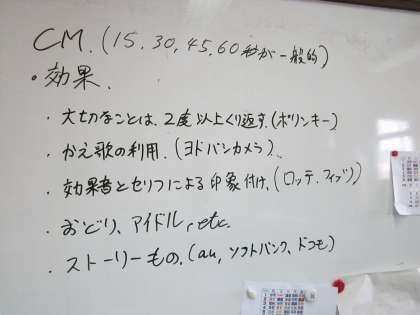 CM.(15.30,45,60秒が一般的)
・効果.
・大切なことは、2度以上くり返す.(ポリンキー)
・かえ歌の利用.(ヨドバシカメラ).
・効果音とセリフによる印象付け.(ロッテ.フィッツ)
・おどり、アイドル,etc.
・ストーリーもの.(au,ソフトバンク、ドコモ)